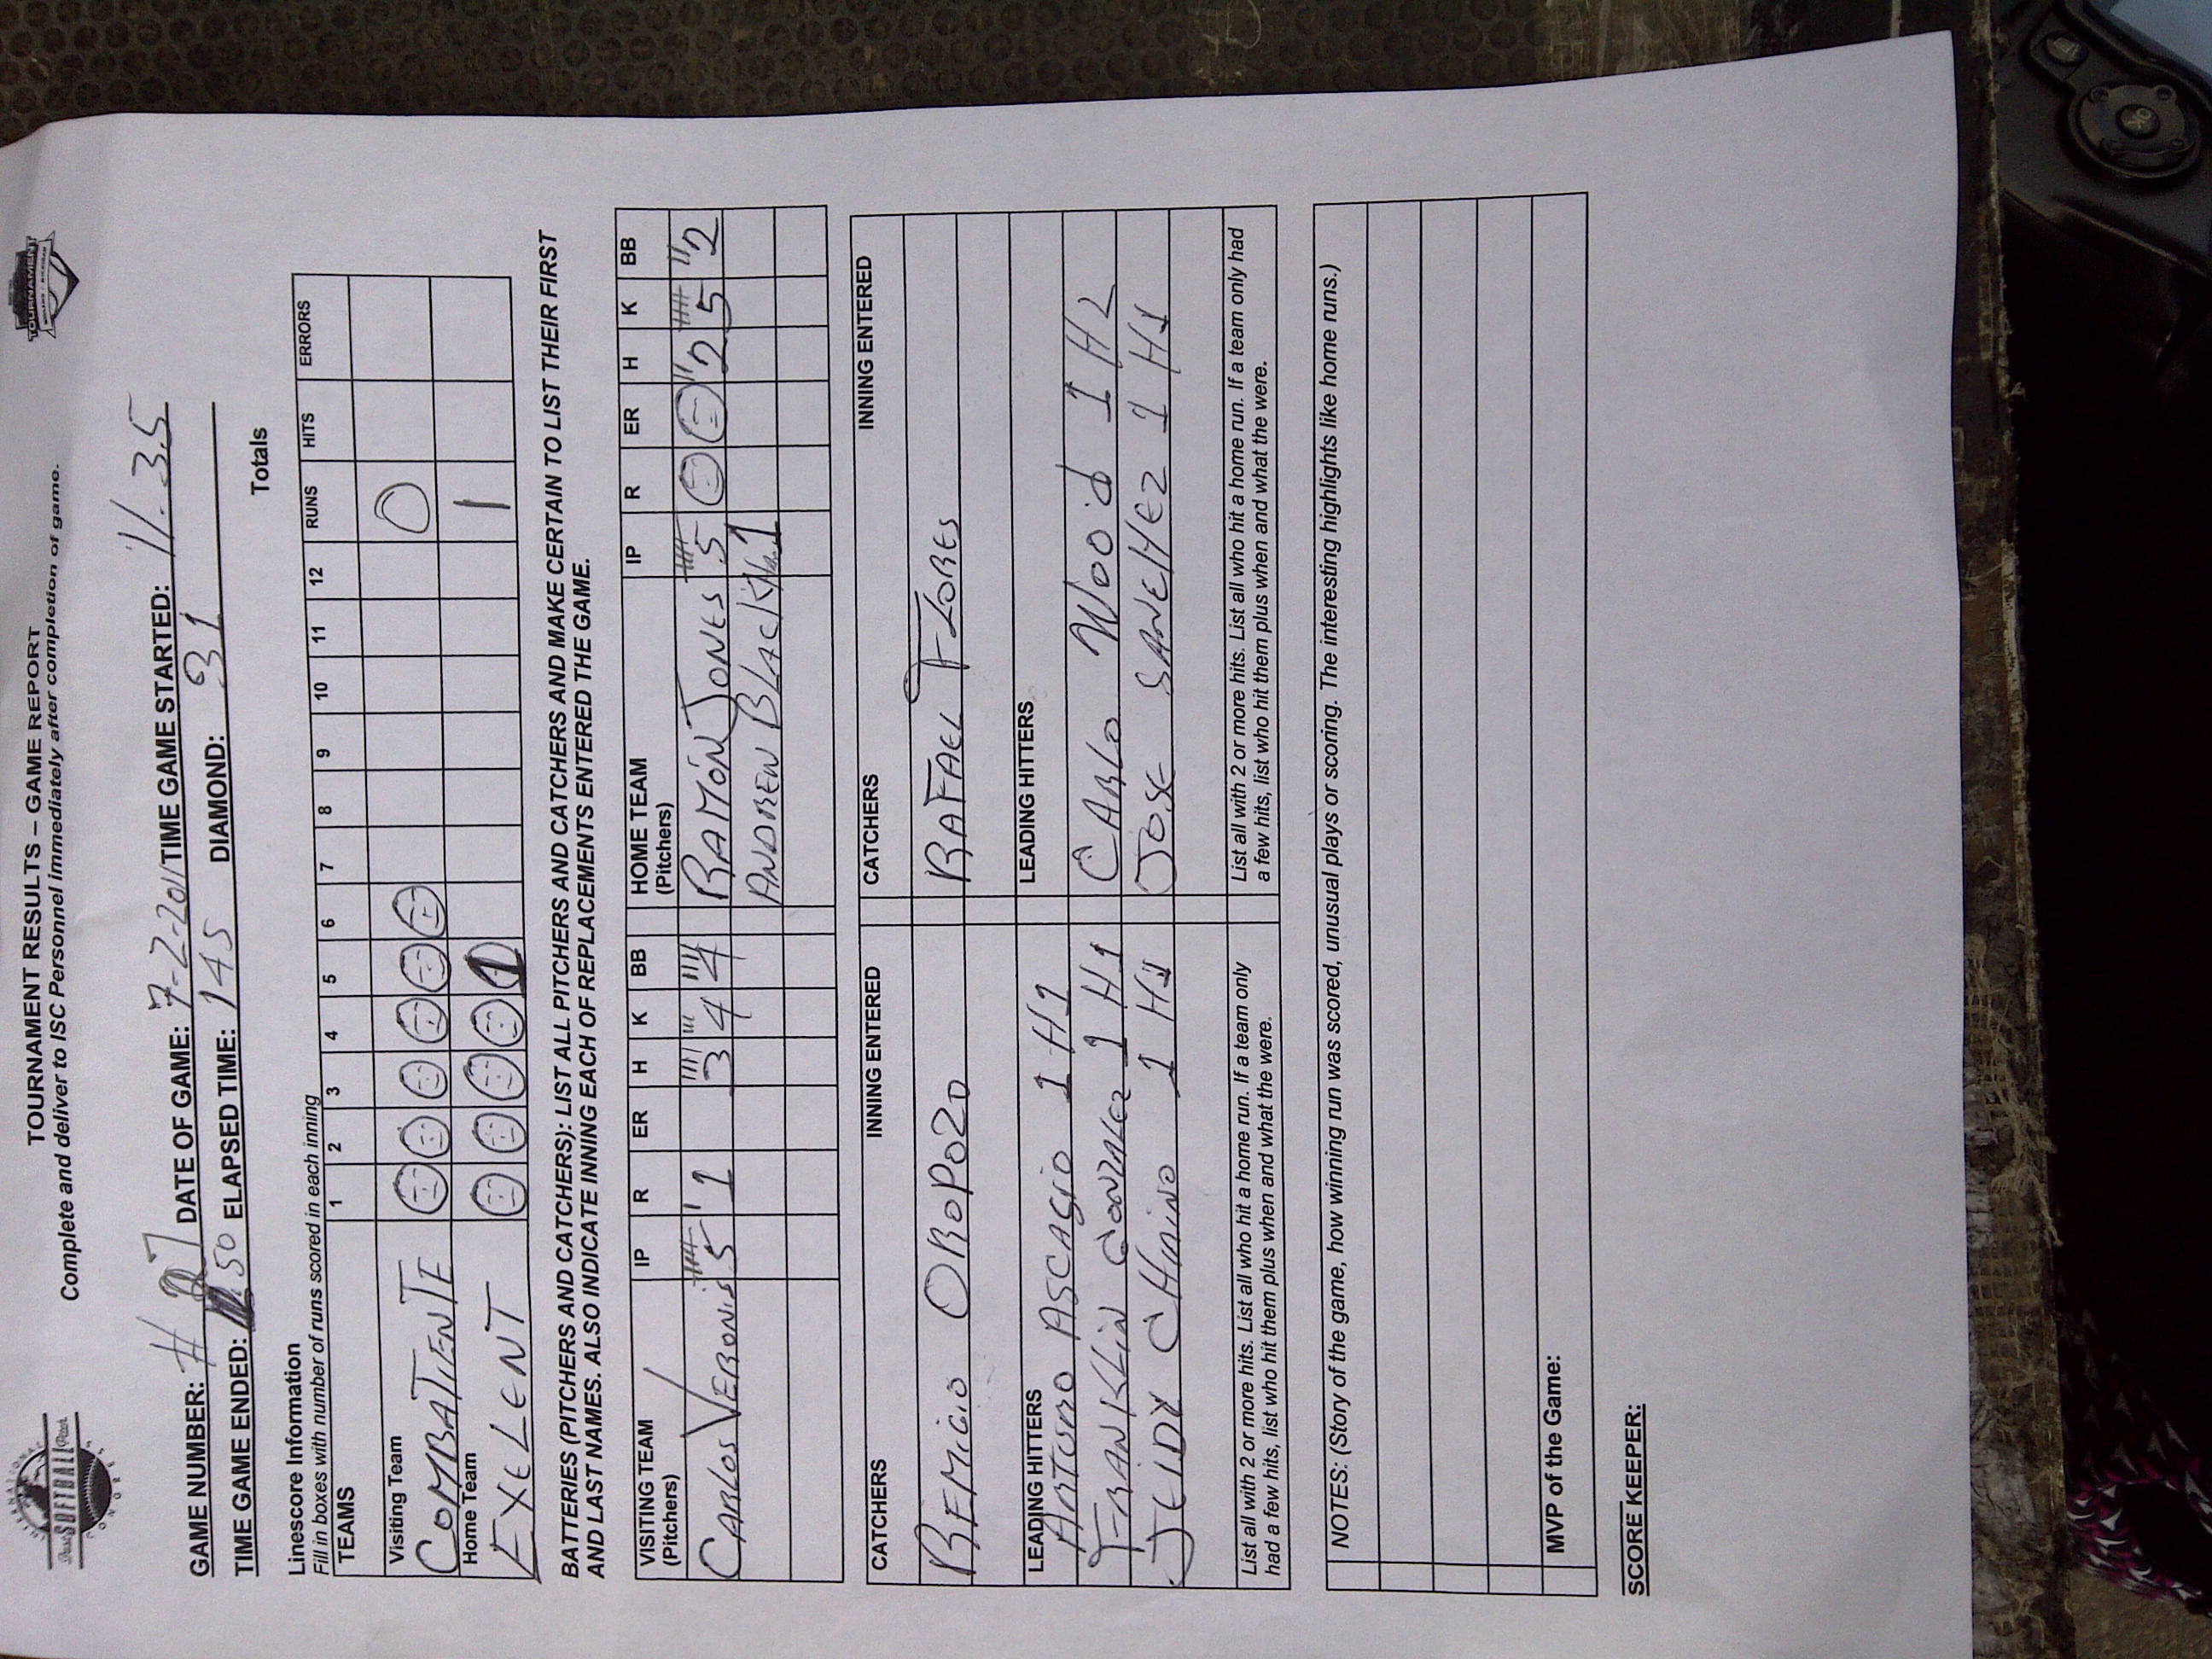 TOURNAMENT RESULTS – GAME REPORT
Complete and deliver to ISC Personnel immediately after completion of game.
SOFTBALL
TOURNAMENT
GAME NUMBER: # 7 DATE OF GAME: 7-2-2011 TIME GAME STARTED: 11.35
TIME GAME ENDED: 50 ELAPSED TIME: 145 DIAMOND: 31
Linescore Information
Totals
Fill in boxes with number of runs scored in each inning
TEAMS 1 2 3 4 5 6 7 8 9 10 11 12 RUNS HITS ERRORS
Visiting Team
COMBATIENTE 0 0 0 0 0 0 0
Home Team
EXELENT 0 0 0 0 1 1
BATTERIES (PITCHERS AND CATCHERS): LIST ALL PITCHERS AND CATCHERS AND MAKE CERTAIN TO LIST THEIR FIRST
AND LAST NAMES. ALSO INDICATE INNING EACH OF REPLACEMENTS ENTERED THE GAME.
VISITING TEAM IP R ER H K BB HOME TEAM IP R ER H K BB
(Pitchers) (Pitchers)
CARLOS VERONIS 5 1 3 4 4 RAMÓN JONES 5 0 0 2 5 2
ANDREW BLACK 1
CATCHERS INNING ENTERED CATCHERS INNING ENTERED
REMIGIO OROPOZO RAFAEL FLORES
LEADING HITTERS LEADING HITTERS
ARTURO ASCAGIO 1 H1
FRANKLIN GONZALEZ 1 H1 CARLO WOOD 1 H2
JEIDY CHNINO 1 H1 JOSE SANCHEZ 1 H1
List all with 2 or more hits. List all who hit a home run. If a team only
had a few hits, list who hit them plus when and what the were.
List all with 2 or more hits. List all who hit a home run. If a team only had
a few hits, list who hit them plus when and what the were.
NOTES: (Story of the game, how winning run was scored, unusual plays or scoring. The interesting highlights like home runs.)
MVP of the Game:
SCORE KEEPER:
OK